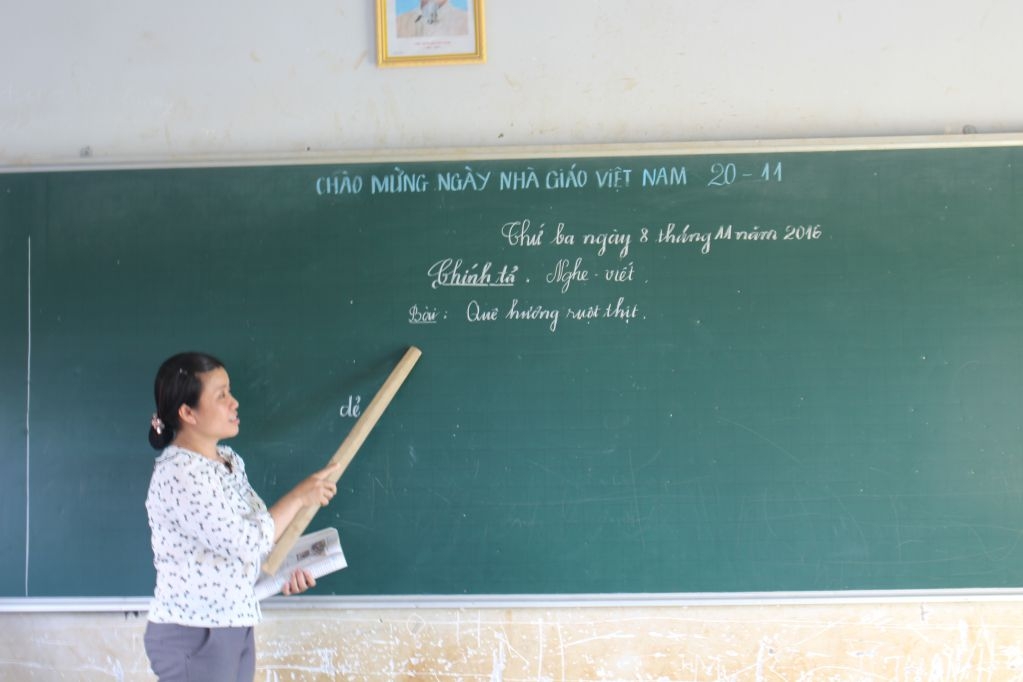 CHÀO MỪNG NGÀY NHÀ GIÁO VIỆT NAM 20-11
Thứ ba ngày 8 tháng 11 năm 2016
Chính tả. Nghe-viết.
Bài: Quê hương ruột thịt.
dẻ